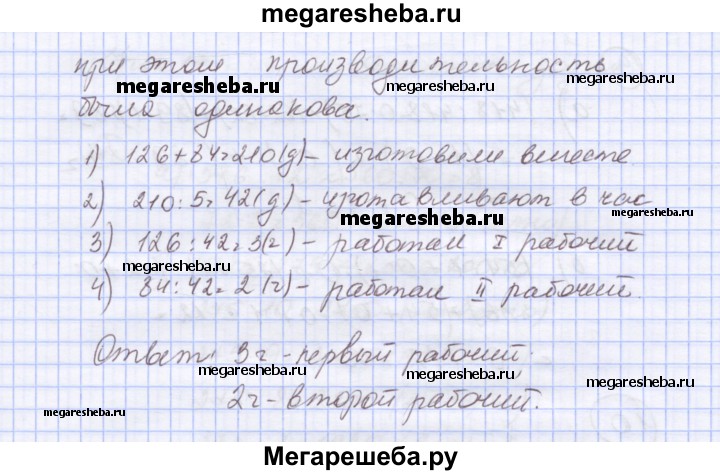 megaresheba.ru
при этом производительность
megaresheba.ru
megaresheba.ru
была одинакова.
1) 126+84=210(д)- изготовили вместе
2) 210:5=42(д)- изготавливают в час
megaresheba.ru
3) 126:42=3(ч)- работал I рабочий
megaresheba.ru
4) 84:42=2(ч)- работал II рабочий.
Ответ: 3ч-первый рабочий.
megaresheba.ru
megaresheba.ru
2ч-второй рабочий.
megaresheba.ru
megaresheba.ru
Мегарешеба.ру